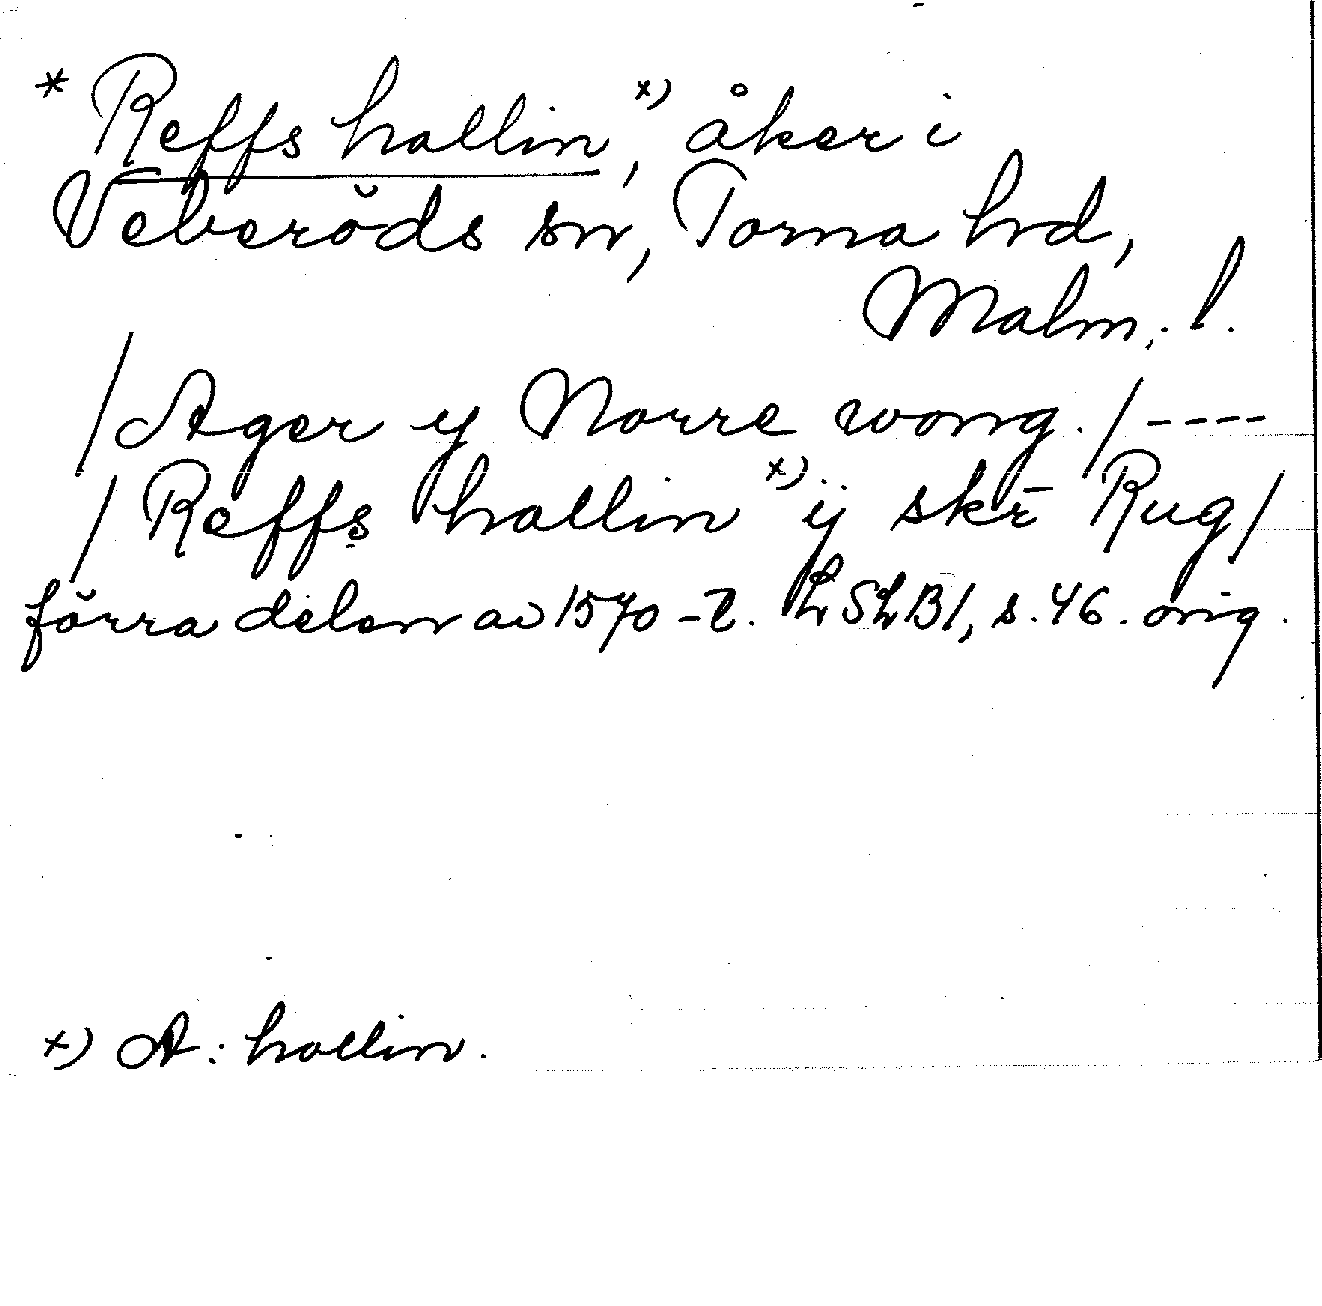 * Reffs hallin, x) åker i
Veberöds sn, Torna hd,
Malm. l.
/Ager y Norre wong./----
/Reffs hallin x) ÿ skr̄ Rug/
förra delen av 1570-t. LSLB1, s. 46. orig.
x) A: hollin.